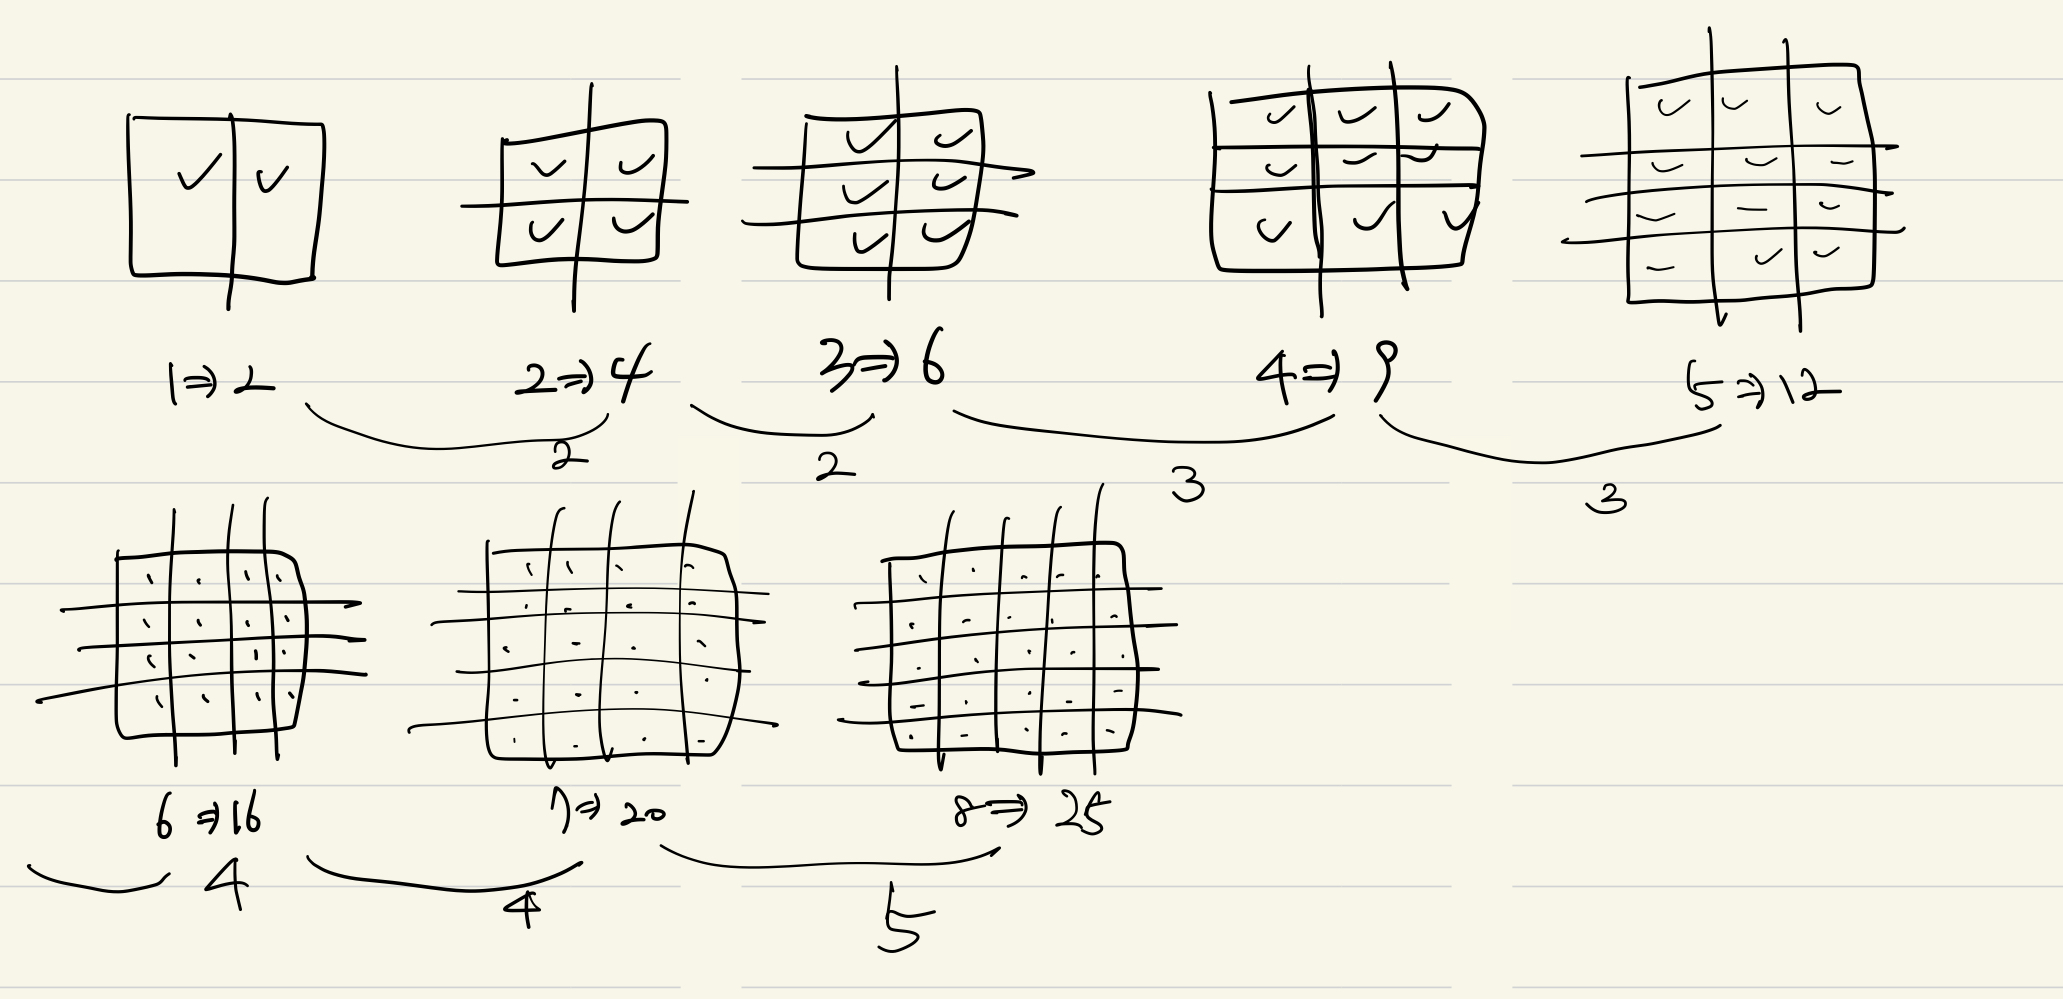 1⇒2 2⇒4 3⇒6 4⇒9 5⇒12
2 2 3 3
6⇒16 7⇒20 8⇒25
4 4 5